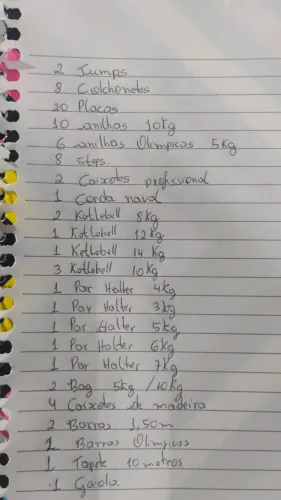 2 Jumps
8 Colchonetes
20 Placas
10 anilhas 10kg
6 anilhas Olimpicos 5kg
8 Steps.
2 Caixotes profissional
1 Corda naval
2 Ketlebell 8kg
1 Ketlobell 12kg
1 Ketlobell 14kg
3 Kotlobell 10kg
1 Par Halter 4kg
1 Par Halter 3kg
1 Par Halter 5kg
1 Par Halter 6kg
1 Par Halter 7kg
2 Bag 5kg /10kg
4 Caixotes de madeira
2 Barras 1,50m
1 Barras Olimpicos
1 Tapete 10 metros
1 Gaiola.